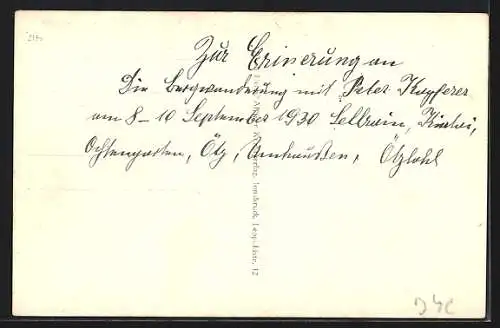 Zur Erinerung an
Die Bergwanderung mit Peter Kupferer
am 8-10 September 1930 Sellrain, Küthei,
Ochsengarten, Ötz, Umhaußen, Ötztahl
Innsbruck, Leopoldstr. 12